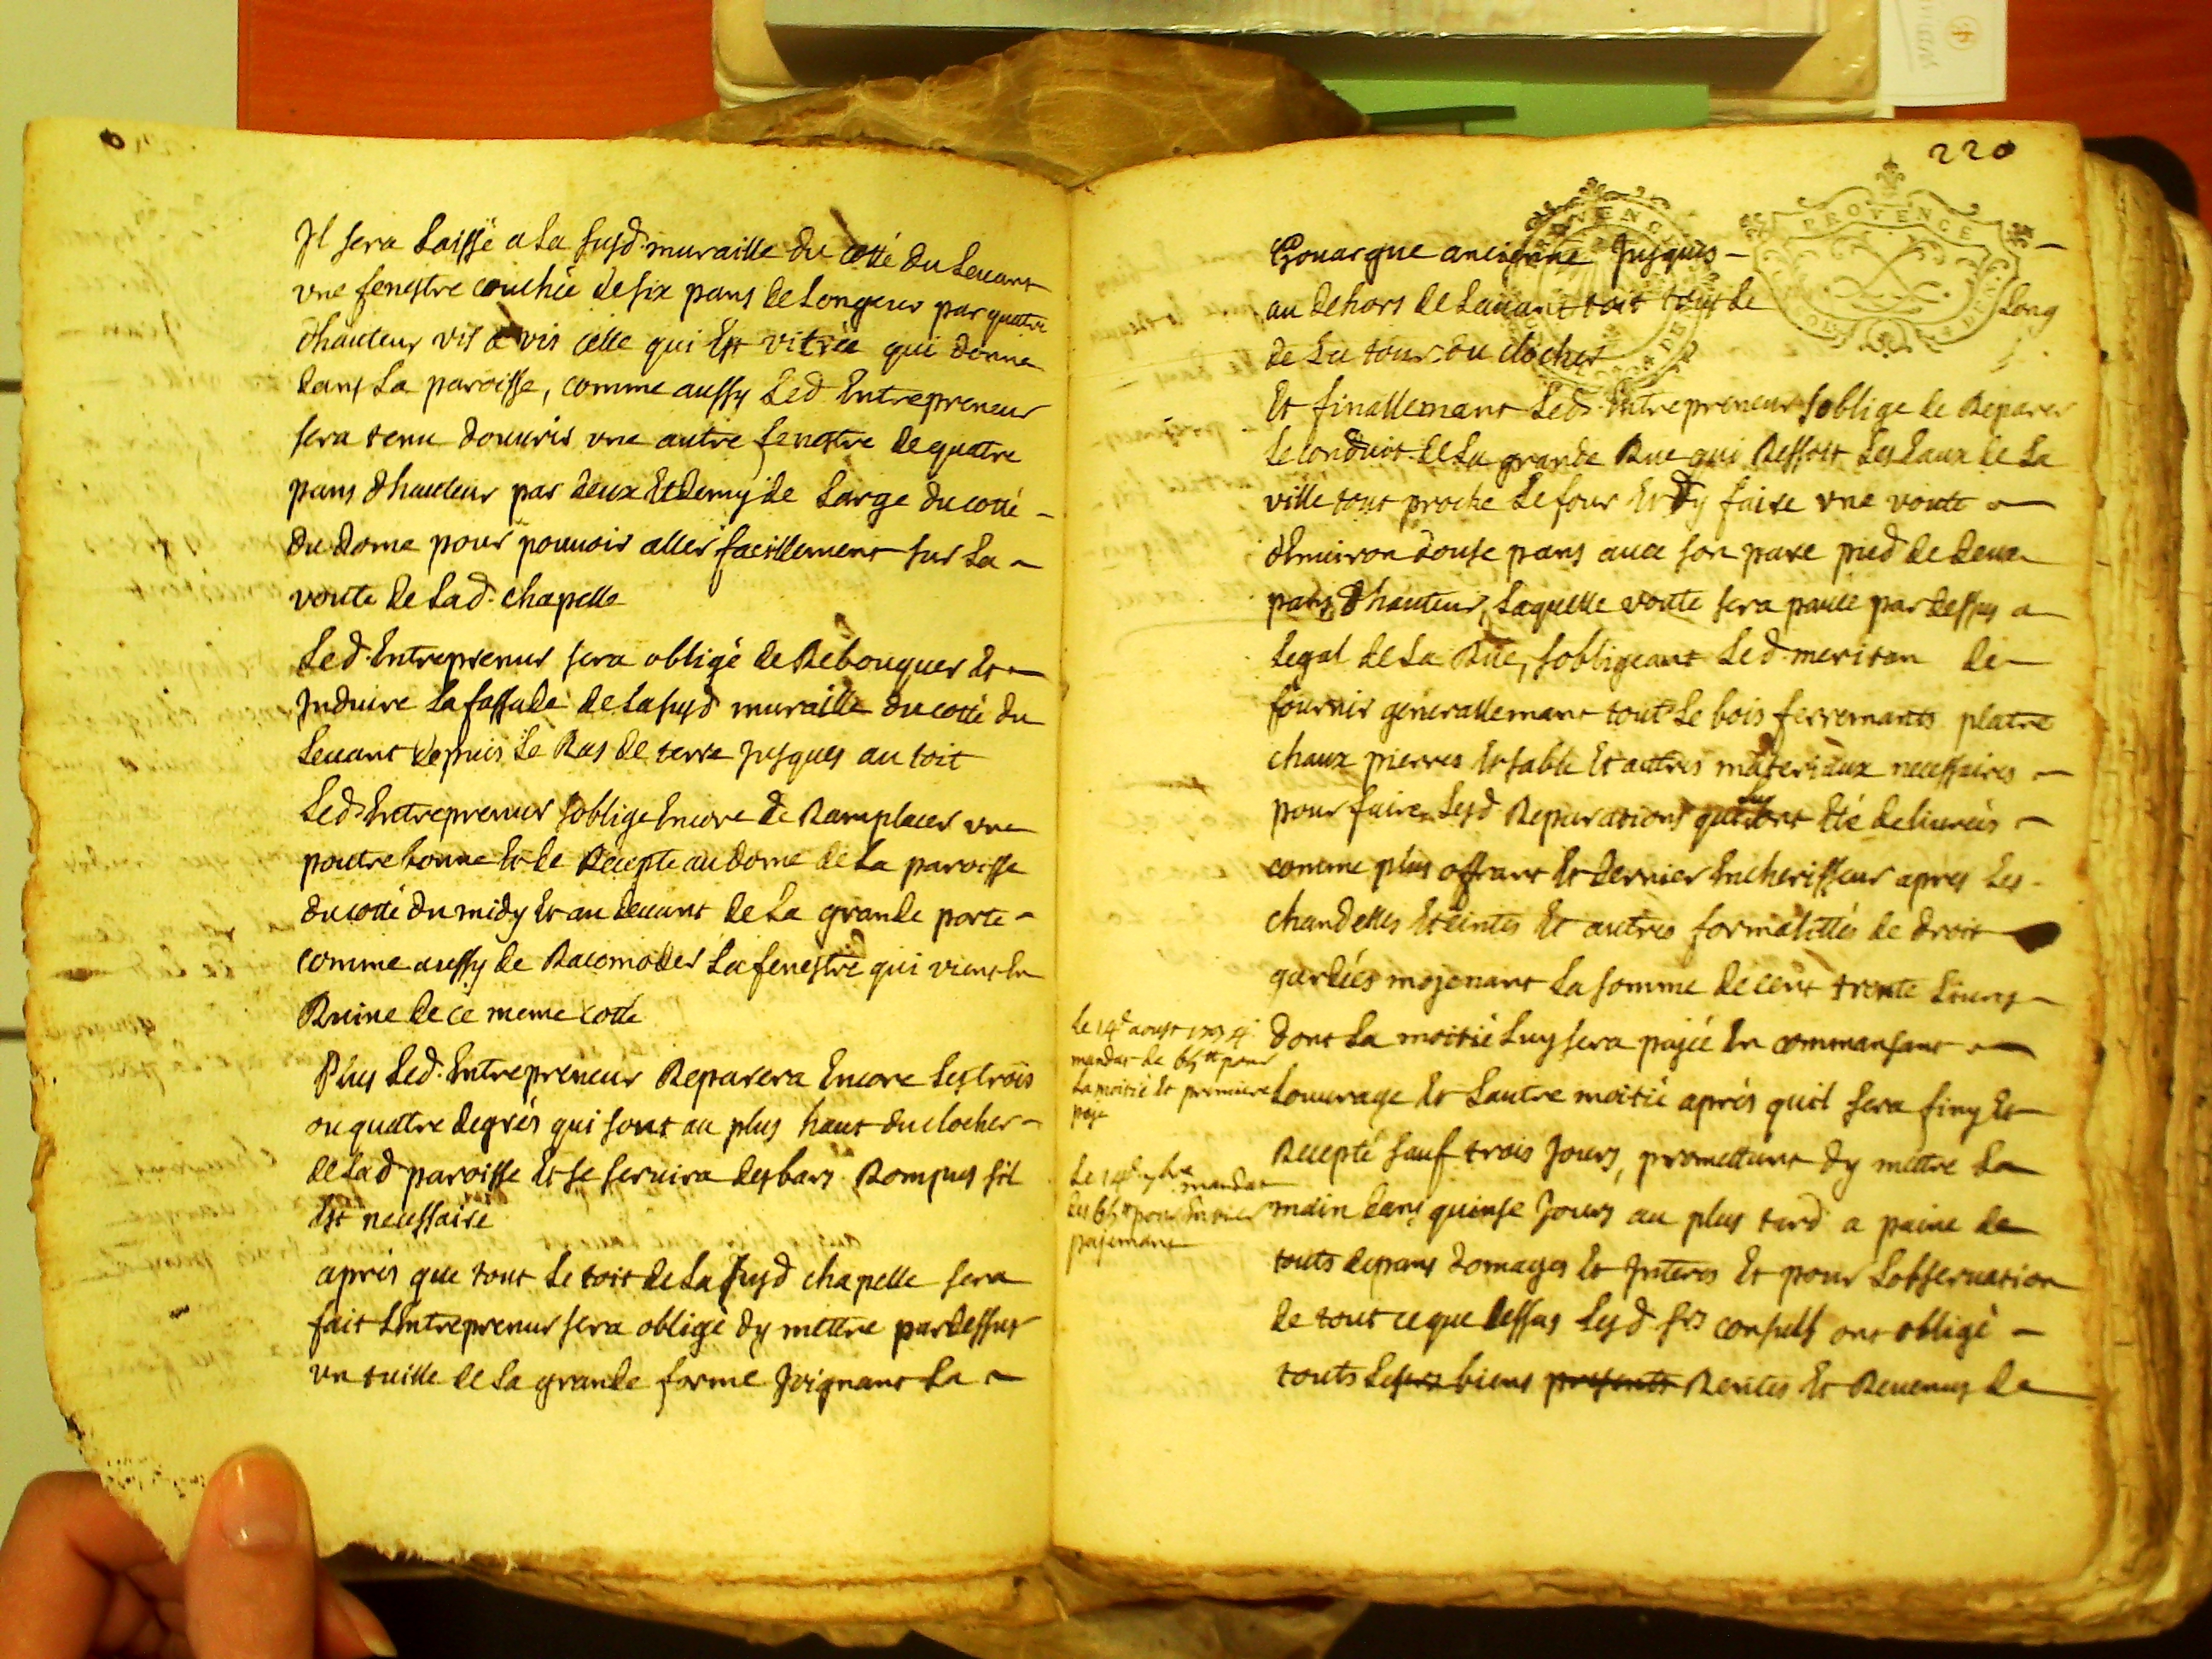 Il sera Laissé a La susd. muraille du cotté du Levant
vne fenestre couchée de six pans de Longeur par quatre
dhauteur vis a vis celle qui Est vitrée qui donne
dans La paroisse, comme aussy Led Entrepreneur
sera tenu douvrir vne autre fenestre de quatre
pans dhauteur par deux Et demy de Large du cotté
du dome pour pouvoir aller facillement sur La
voute de Lad. chapelle
Led. Entreprenur sera obligé de Rebouquer Et
Induire La fassade de La susd muraille du cotté du
Levant depuis Le Ras de terre jusques au toit
Led. Entreprenur soblige Encore de Ramplacer vne
poutre bonne Et de Recepte au dome de La paroisse
du cotté du midy Et au devant de La grande porte
comme aussy de Racomoder La fenestre qui vient En
Ruine de ce meme cotté
Plus Led. Entrepreneur Reparera Encore Les trois
ou quatre degrés qui sont au plus haut du clocher
de Lad paroisse Et se servira des bars Rompus sil
Est necessaire
aprés que tout Le toit de La susd chapelle sera
fait LEntreprenur sera obligé dy mettre pardessus
vn tuille de La grande forme Joignant La
220
PROVENCE
Gouargue ancienne Jusques
au dehors de Lavant toit tout Le Long
de La tour du clocher
Et finallemant Led. Entrepreneur soblige de Reparer
Le conduit de La grande Rue qui Ressoit Les Eaux de La
ville tout proche Le four Et dy faire vne voute
dEnviron douse pans avec son pare pied de deux
pans dhauteur, Laquelle voute sera pavée par dessus a
Legal de La Rue, sobligeant Led. meritan de
fournir generallemant tout Le bois ferremants platre
chaux pierres Et sable Et autres materiaux necessaires
pour faire Lesd Reparations qui luy ont Eté delivrées
comme plus offrant Et dernier Encherisseur apres Les
chandelles Eteintes Et autres formalittés de droit
gardées mojenant La somme de cent trente Livres
dont La moitié Luy sera pajée En commansant
Louvrage Et Lautre moitié aprés quil sera finy Et
Recepté sauf trois Jours, promettant dy mettre La
main dans quinse Jours au plus tard a paine de
touts depans domages Et Interes Et pour Lobservation
de tout ce que dessus Lesd. srs consuls ont obligé
touts Les biens presents Rentes Et Revenus de
Le 14e aoust
mandat de 65 ll pour
La moitié Et premiere
paje
Le 14e 7bre mandat
des 65 ll pour Entier
pajemant